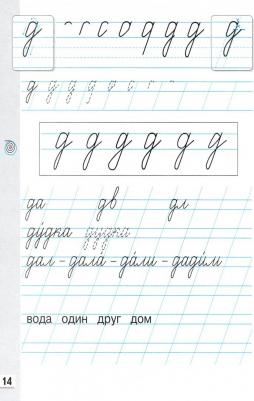 д г с о д д д д
д д д д о с г
д д д д д д
да дв дл
ду́дка ду́дка
дал – дала́ – да́ли – дади́м
вода один друг дом
14